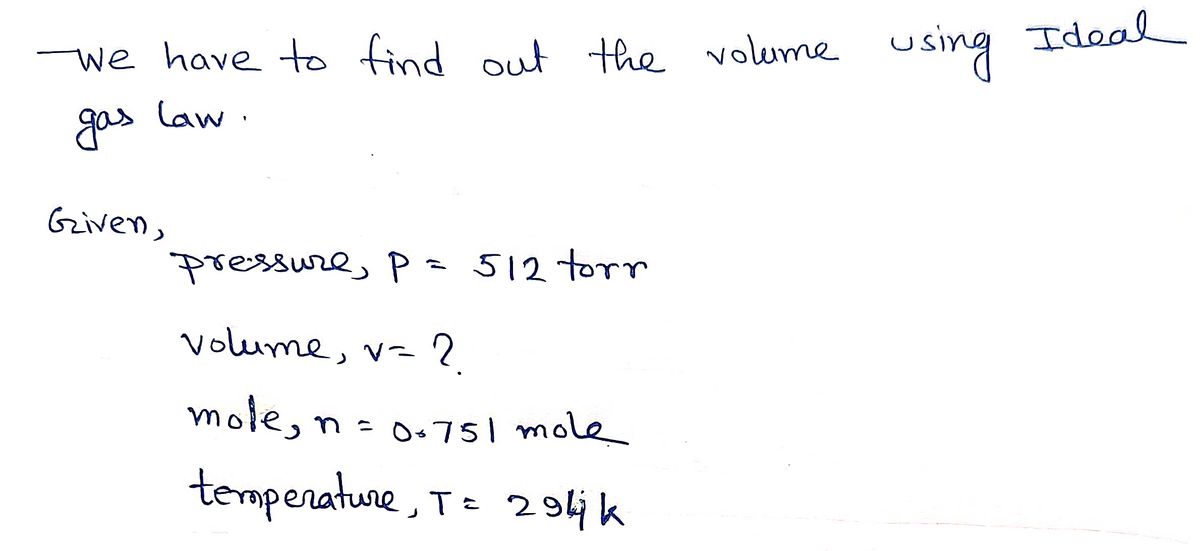 We have to find out the volume using Ideal
gas law.
Given,
pressure, P = 512 torr
volume, v = ?
mole, n = 0.751 mole
temperature, T = 294 k